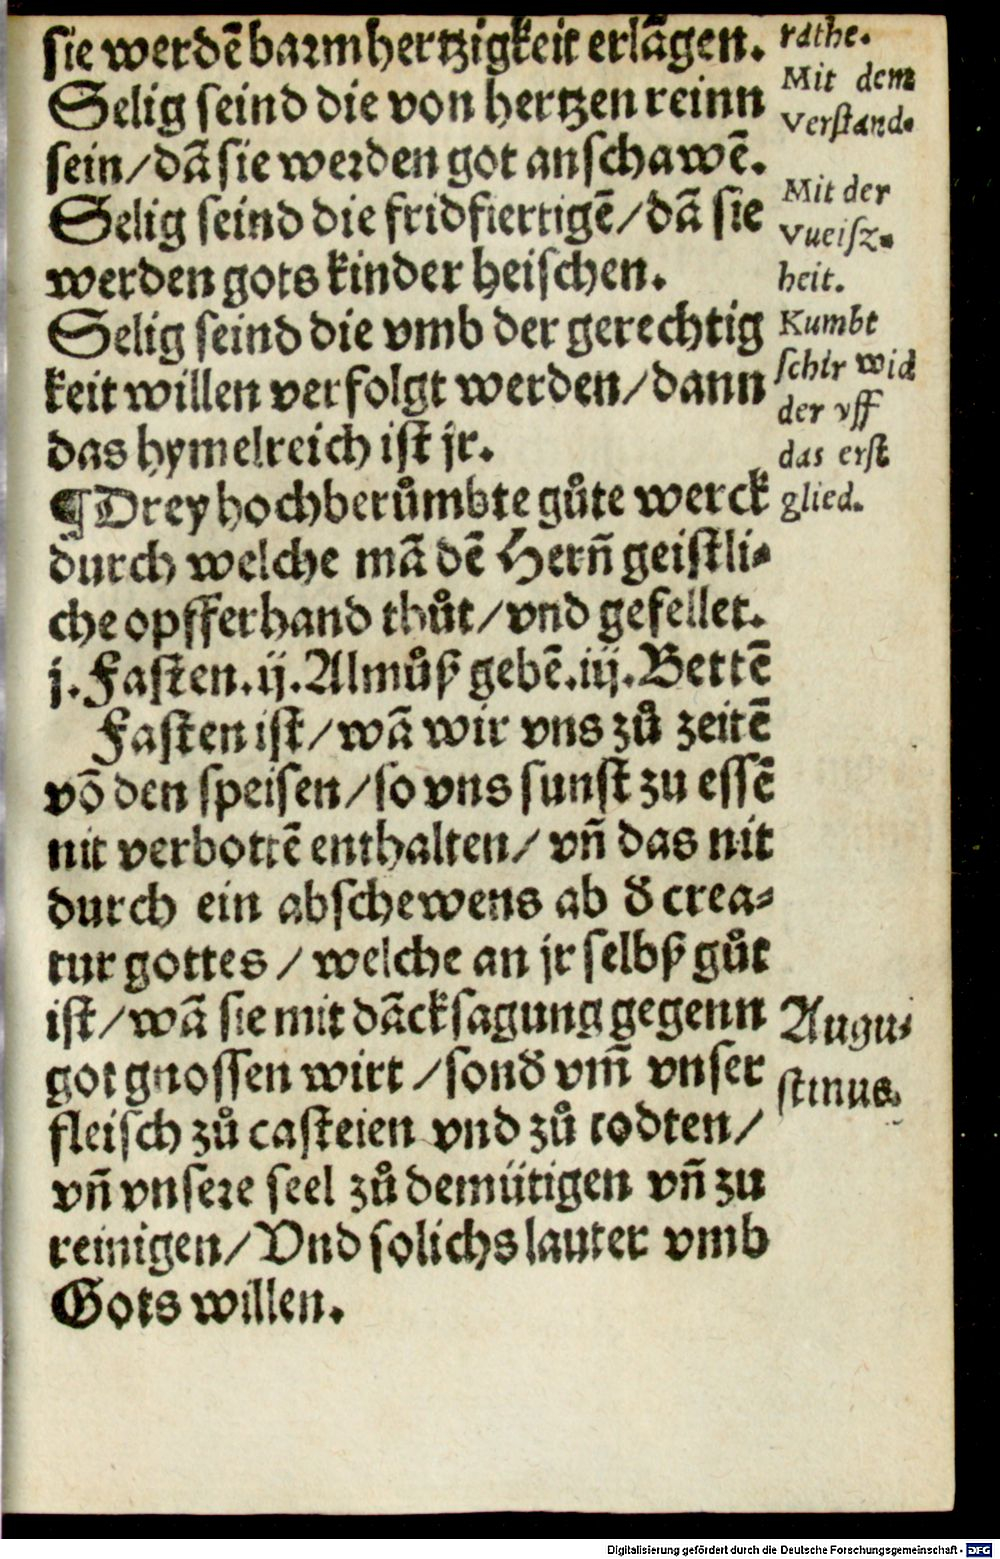 sie werdē barmhertzigkeit erlāgen.
Selig seind die von hertzen reinn
sein/dā sie werden got anschawē.
Selig seind die fridfiertigē/dā sie
werden gots kinder heischen.
Selig seind die vmb der gerechtig
keit willen verfolgt werden/dann
das hymelreich ist jr.
¶Drey hochberůmbte gůte werck
durch welche mā dē Herñ geistli⸗
che opfferhand thůt/vnd gefellet.
j. Fasten. ij. Almůß gebē. iij. Bettē
Fasten ist/wā wir vns zů zeitē
vō den speisen/so vns sunst zu essē
nit verbottē enthalten/vñ das nit
durch ein abschewens ab d̄ crea⸗
tur gottes/welche an jr selbß gůt
ist/wā sie mit dācksagung gegenn
got gnossen wirt/sond̄ vm̄ vnser
fleisch zů casteien vnd zů todten/
vñ vnsere seel zů demütigen vñ zu
reinigen/Vnd solichs lauter vmb
Gots willen.
rathe.
Mit dem
Verstand.
Mit der
Vueisz⸗
heit.
Kumbt
schir wid
der vff
das erst
glied.
Augu⸗
stinus.
Digitalisierung gefördert durch die Deutsche Forschungsgemeinschaft - DFG